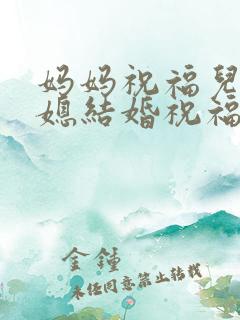 妈妈祝福兒
媳結婚祝福
金鍾
未任同意禁止转载